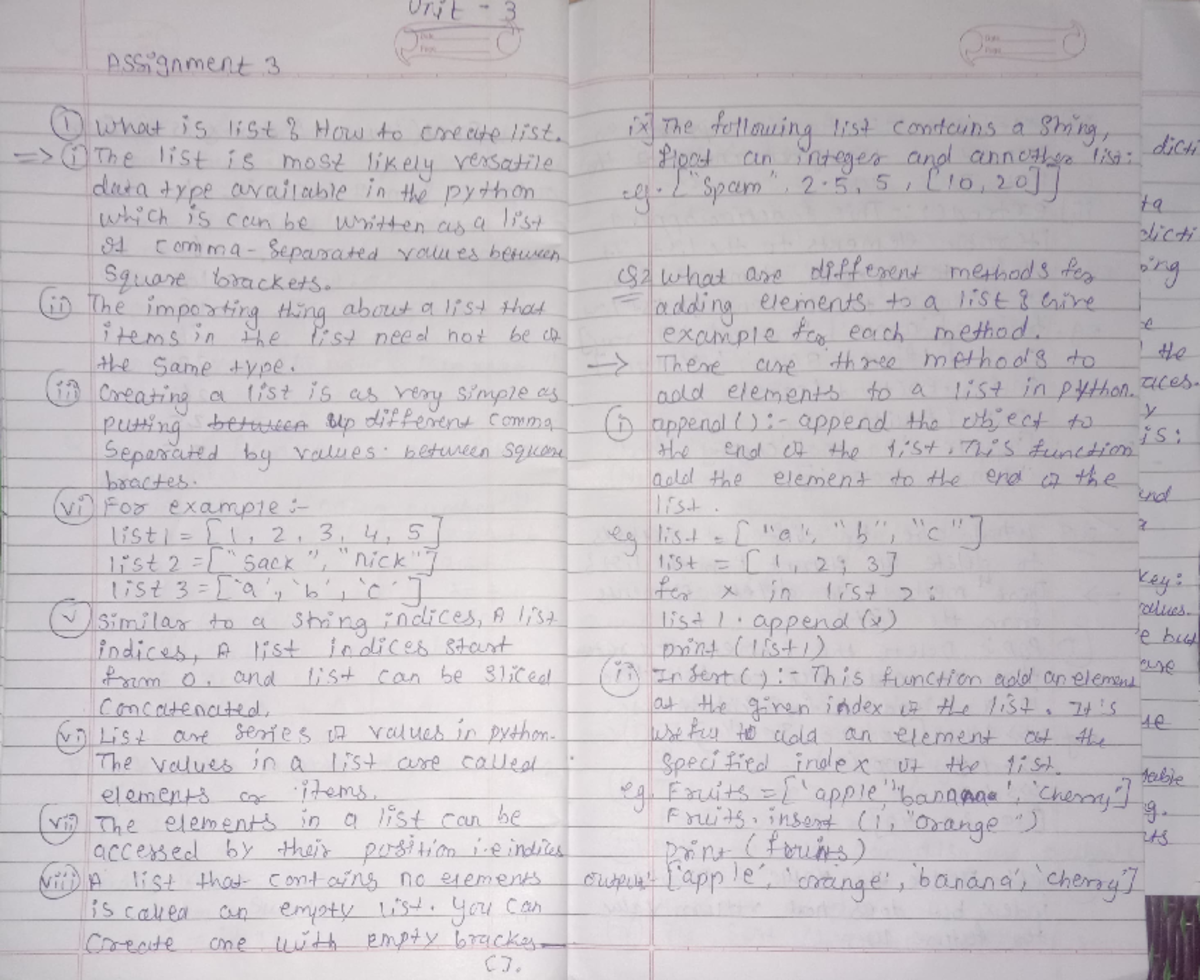 Unit - 3
Assignment 3
① What is list? How to create list.
=> ⓘ The list is most likely versatile
data type available in the python
which is can be written as a list
of comma-separated values between
Square brackets.
ⓘⓘ The importing thing about a list that
items in the list need not be of
the same type.
iii Creating a list is as very simple as
putting between up different comma
Separated by values. between square
bractes.
vi For example :-
list1 = [1, 2, 3, 4, 5]
list 2 = ["Sack", "nick"]
list 3 = ['a', 'b', 'c']
v Similar to a string indices, A list
indices, A list indices start
from 0. and list can be sliced
Concatenated,
vi List are series of values in python.
The values in a list are called
elements or items.
vii The elements in a list can be
accessed by their position i.e indices
viii A list that contains no elements
is called an empty list. You can
Create one with empty brackes
[].
ix] The following list contains a string,
float an integer and annother list:
eg. ["Spam", 2.5, 5, [10, 20]]
Q2 What are different methods for
adding elements to a list? Give
example for each method.
→ There are three methods to
add elements to a list in python.
i append():- append the object to
the end of the list. This function
add the element to the end of the
list.
eg list = ["a", "b", "c"]
list = [1, 2, 3]
for x in list 2:
list 1. append (x)
print (list1)
ii Insert():- This function add an element
at the given index of the list. It's
to add an element at the
Specified index of the list.
eg. Fruits = ['apple" 'cherry"]
Fruits. insert (1, "orange")
print (fruits)
output- ['apple', 'orange', 'banana', 'cherry"]
dicti
ta
dicti
ing
e
the
aces.
y
is:
and
a
key:
alues.
e but
are
ue
table
g.
ts